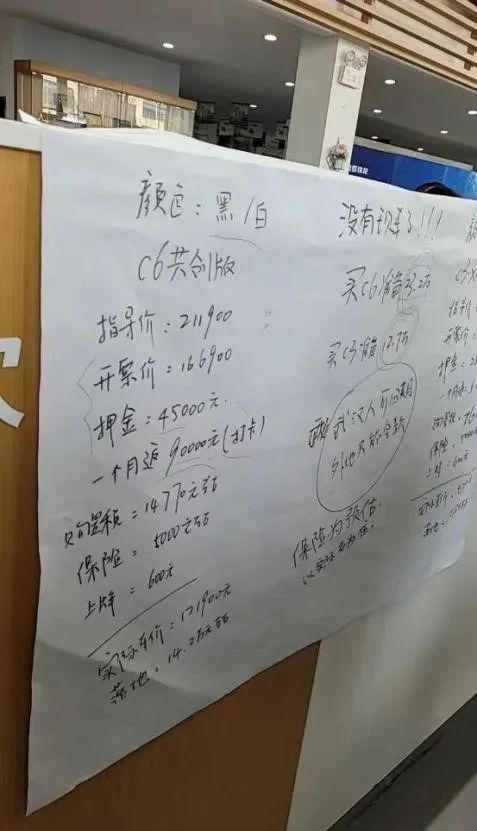 颜色：黑/白
C6共创版
指导价：211900
开票价：166900
押金：45000元
一个月返90000元(打卡)
购置税：14770元左右
保险：5000元左右
上牌：600元
实际车价：121900元
落地：14.2万元左右
没有现车了!!!
买C6准备23.2万
买C3准备12.7万
武汉人可以分期
外地只能全款
保险为预估.
以实际出为准.
指导价
开票价：
押金：
上牌：600元